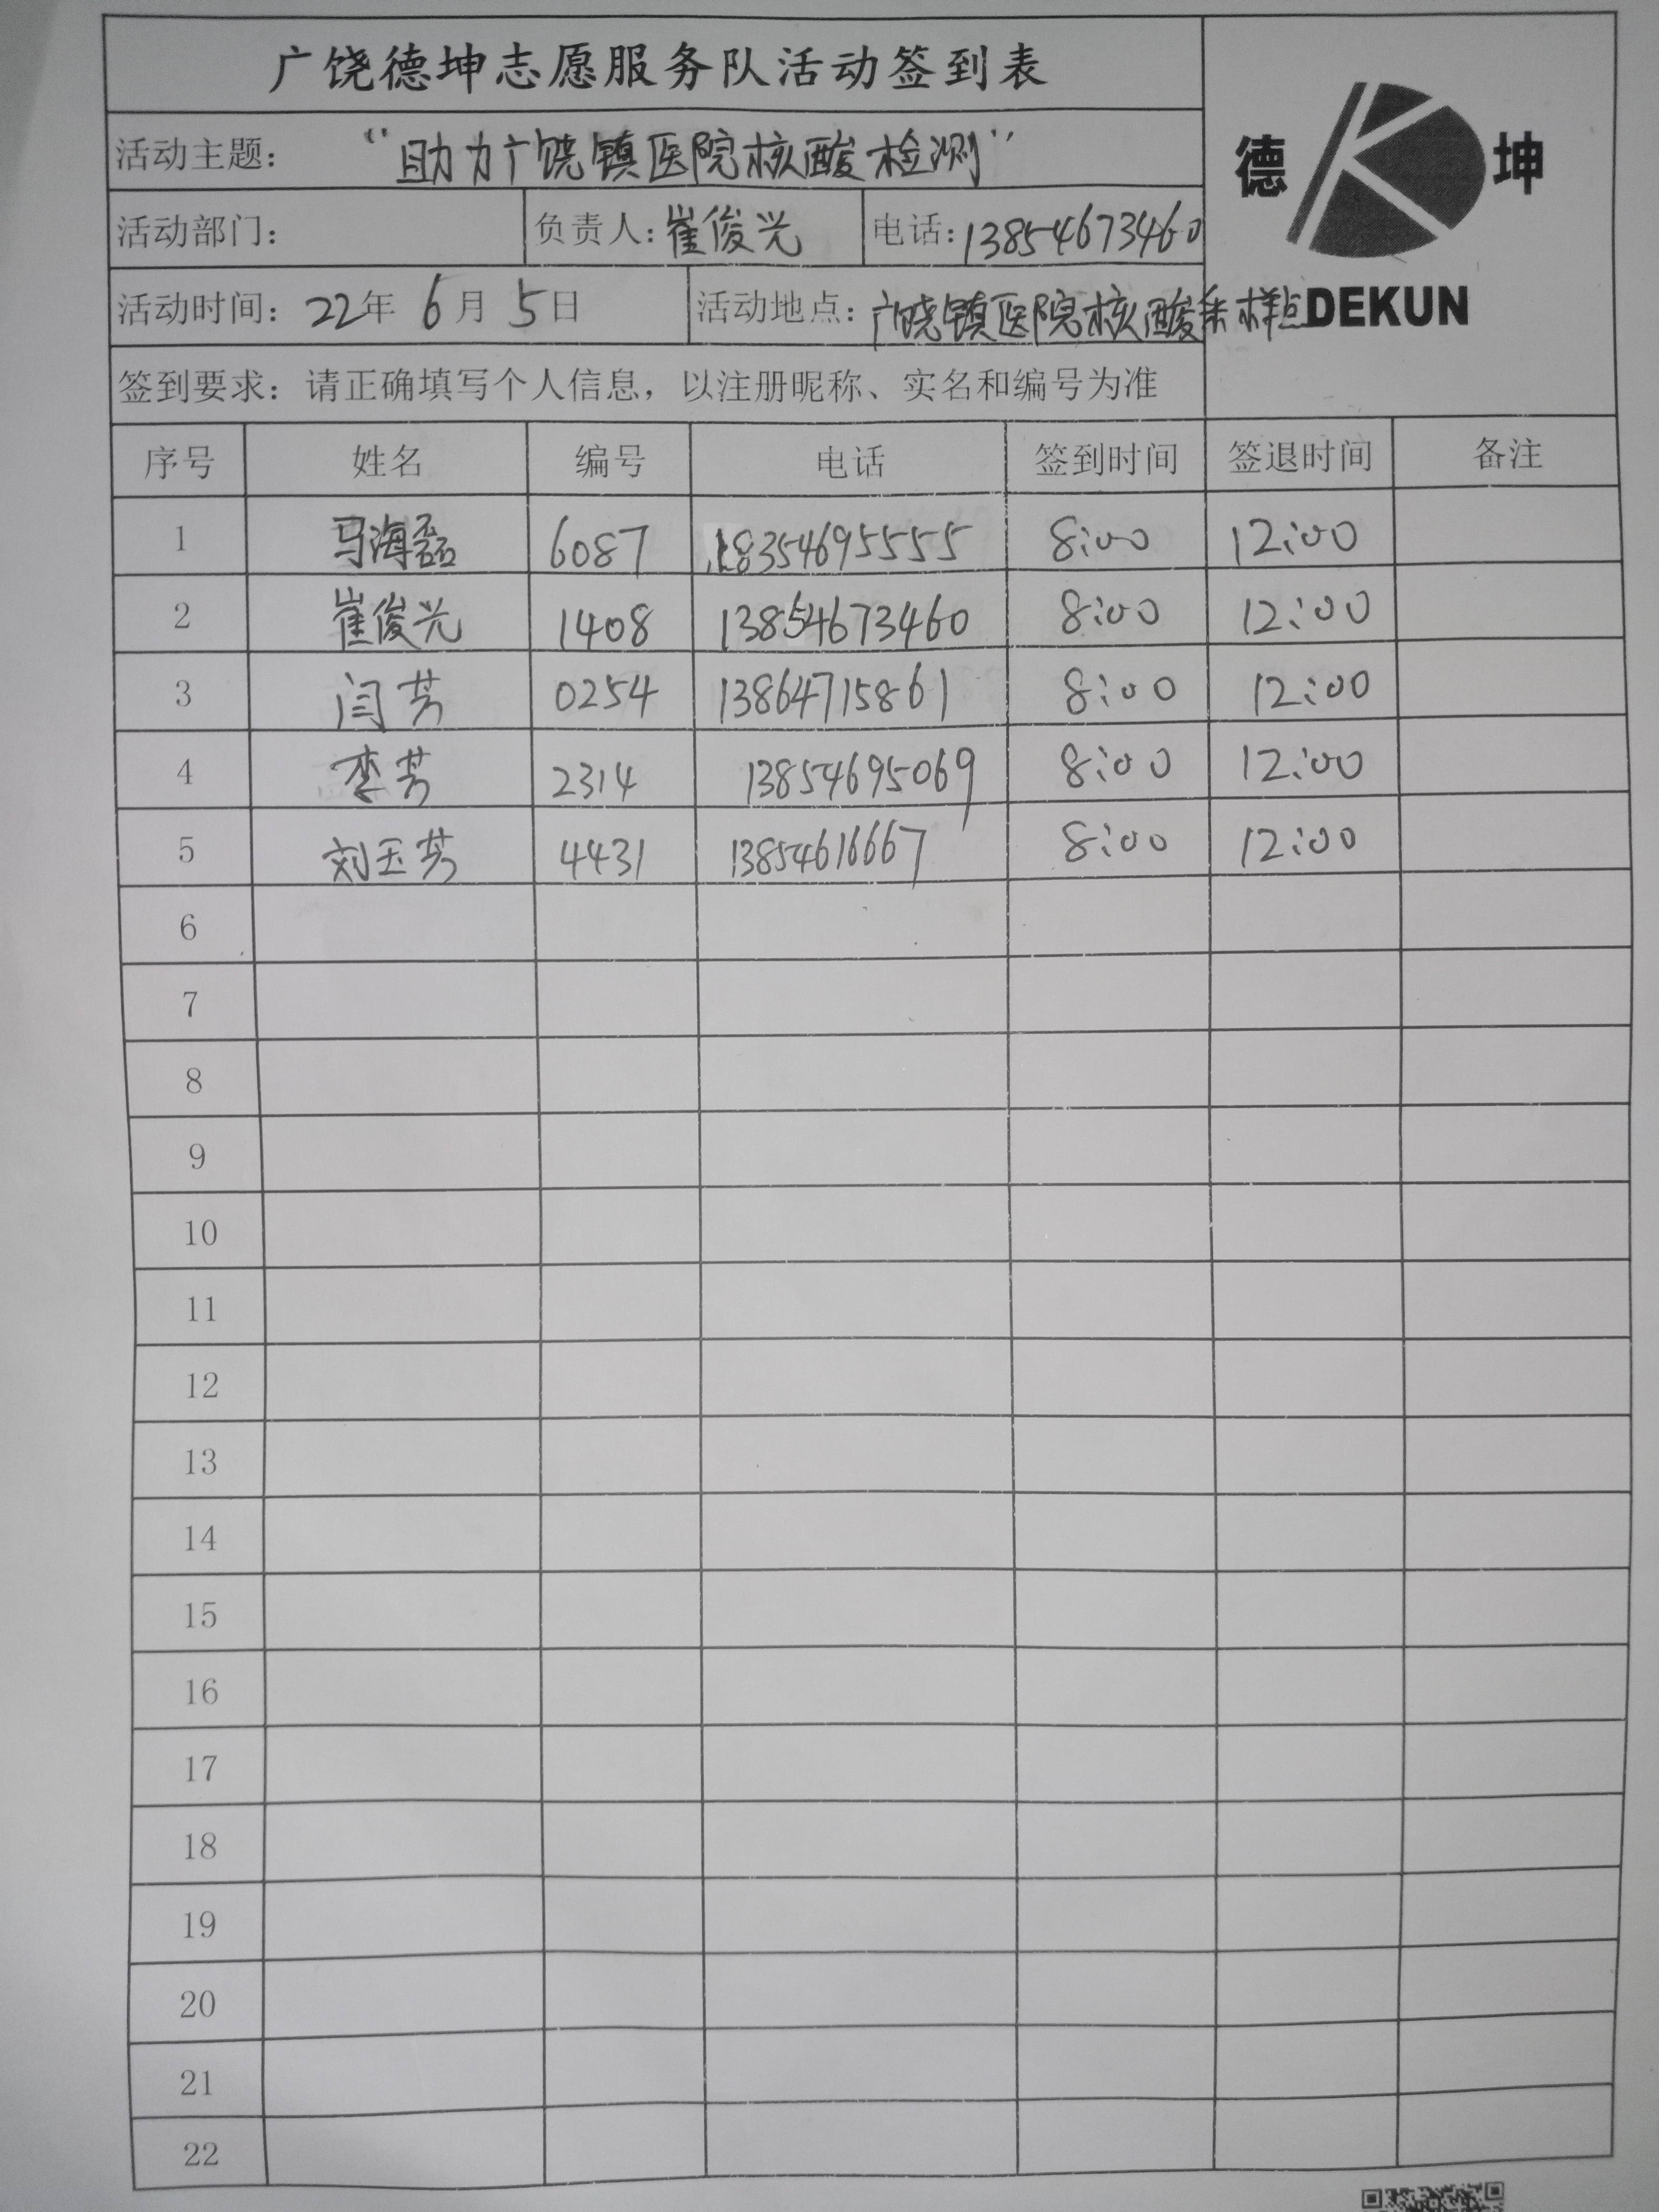 广饶德坤志愿服务队活动签到表
活动主题： “助力广饶镇医院核酸检测”
德 坤
活动部门： 负责人：崔俊光 电话：13854673460
活动时间：22年 6月 5日 活动地点：广饶镇医院核酸采样点
DEKUN
签到要求：请正确填写个人信息，以注册昵称、实名和编号为准
序号 姓名 编号 电话 签到时间 签退时间 备注
1 马海磊 6087 18354695555 8:00 12:00
2 崔俊光 1408 13854673460 8:00 12:00
3 闫芳 0254 13864715861 8:00 12:00
4 李芳 2314 13854695069 8:00 12:00
5 刘玉芳 4431 13854616667 8:00 12:00
6
7
8
9
10
11
12
13
14
15
16
17
18
19
20
21
22